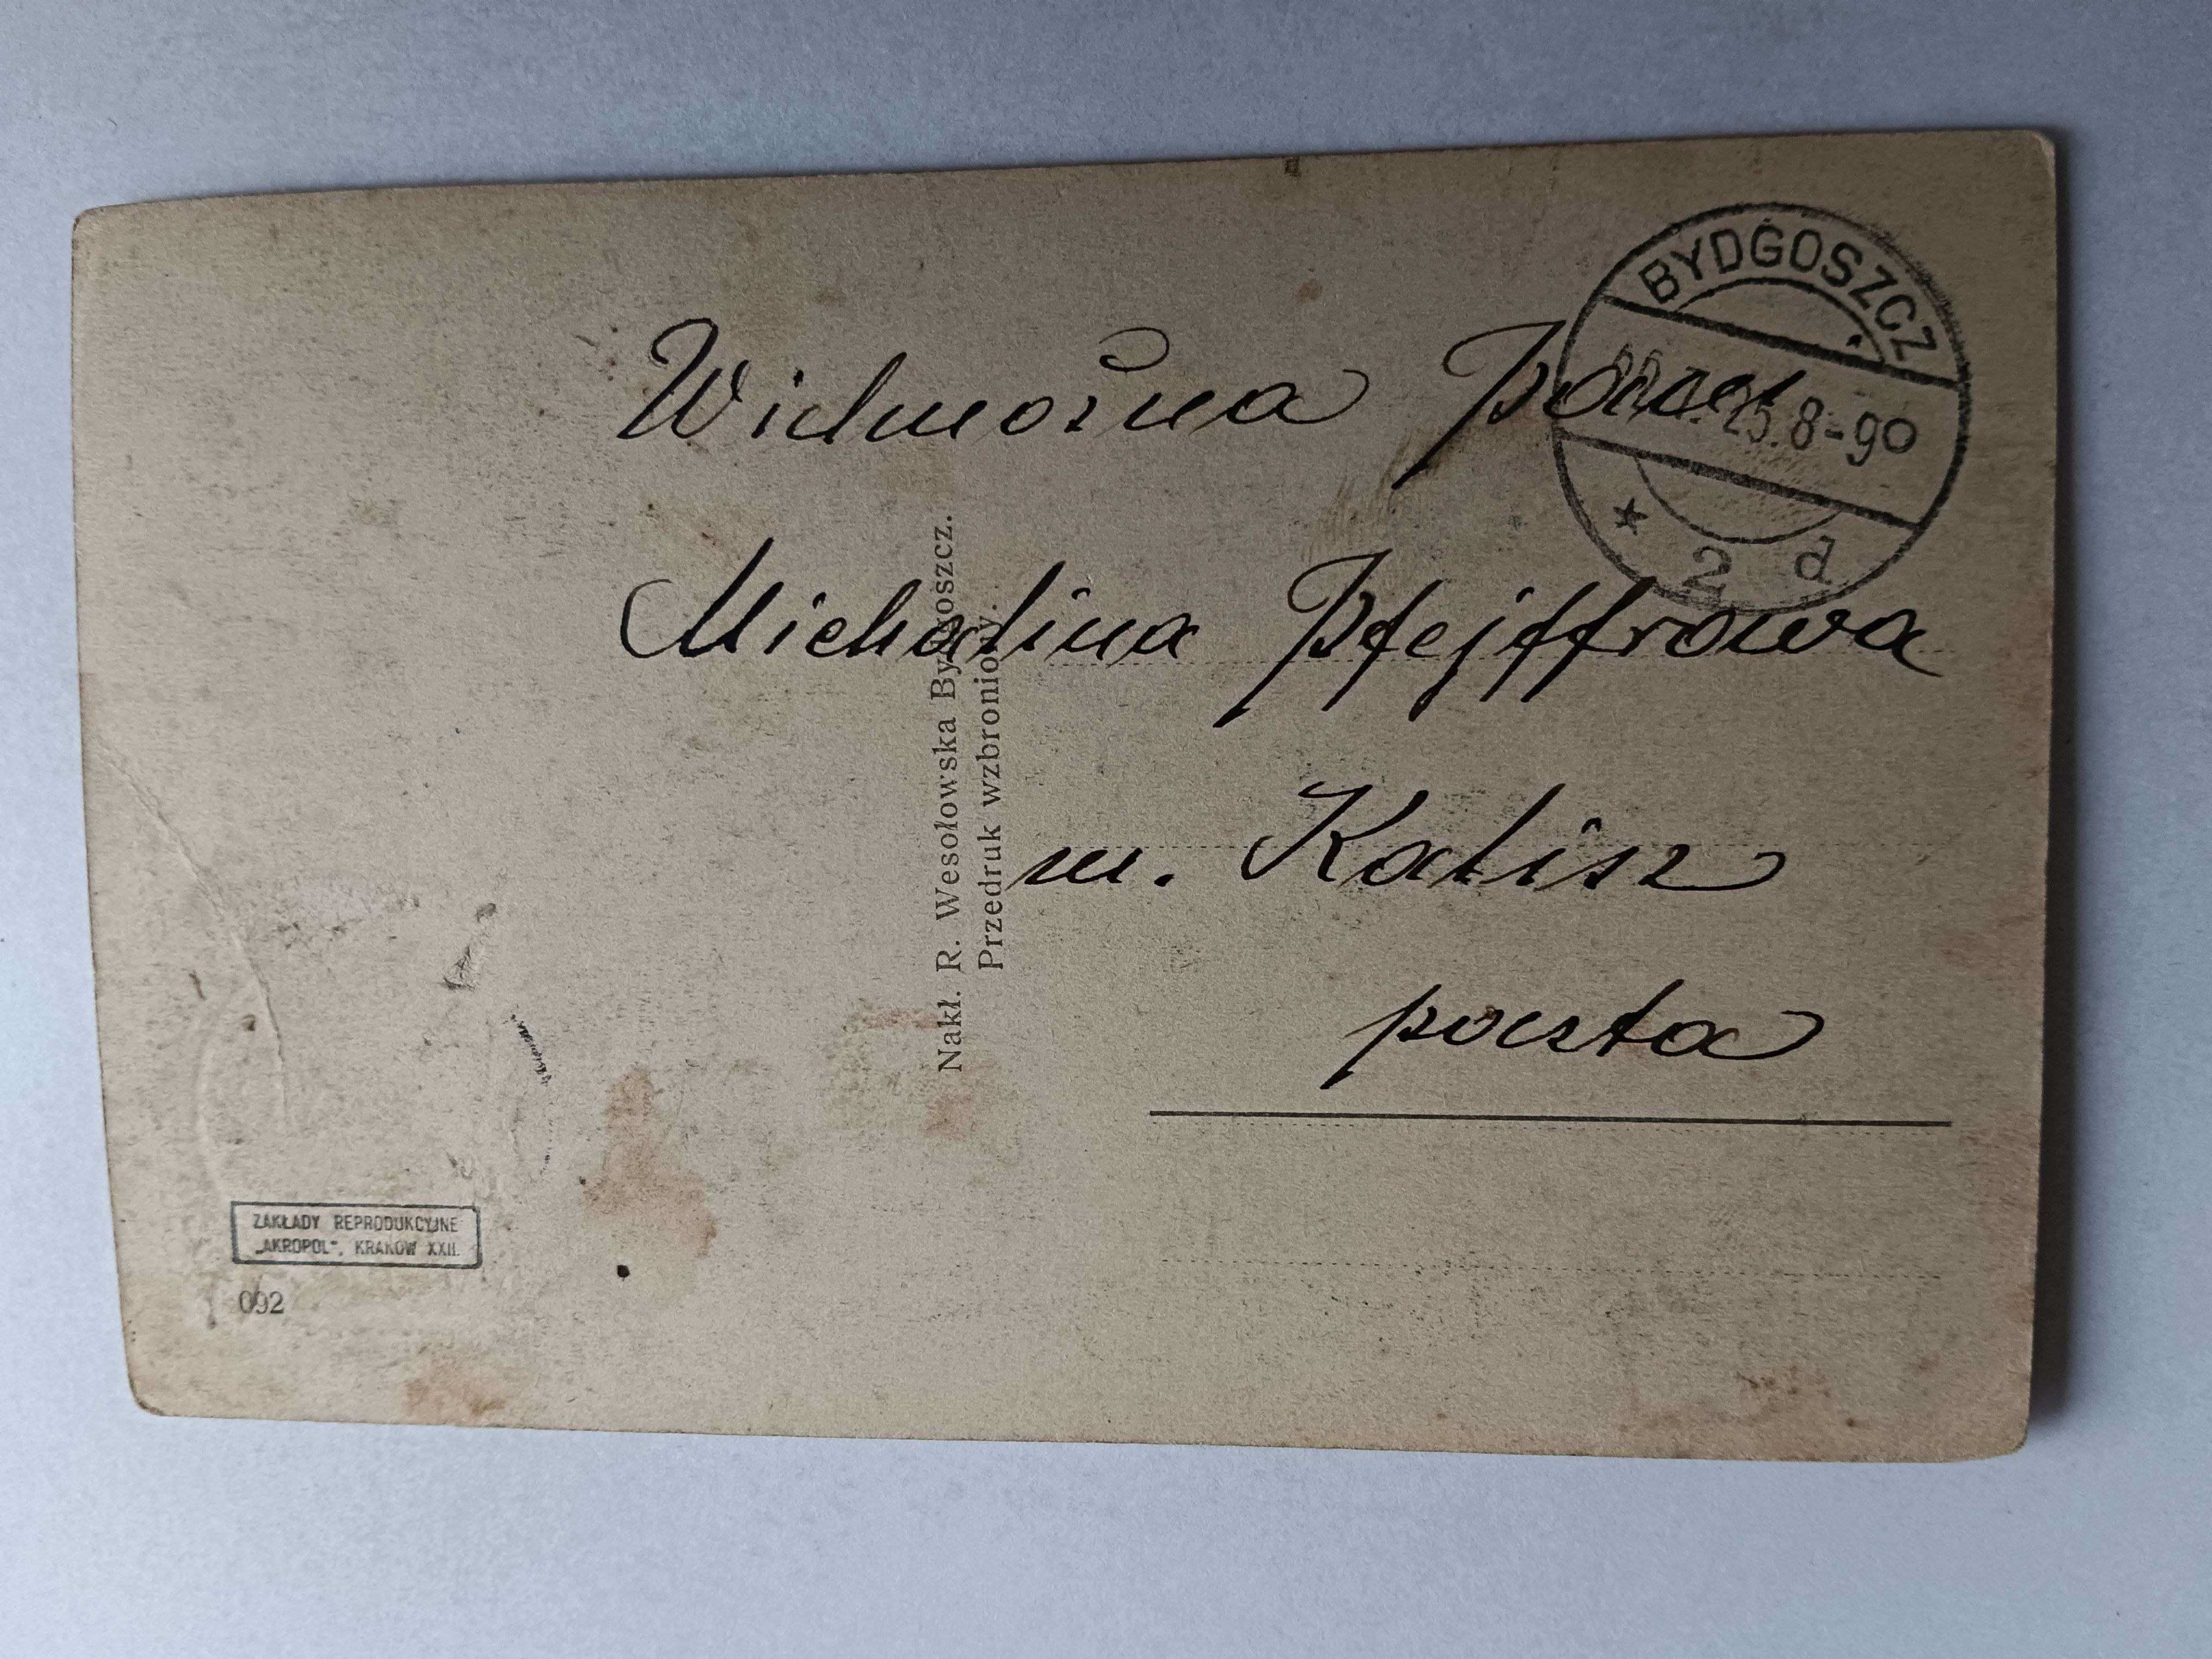 BYDGOSZCZ
25.8-9⁰
* 2 d
Wielmożna Pani
Michalina Pfejffrowa
m. Kalisz
poczta
Nakł. R. Wesołowska Bydgoszcz.
Przedruk wzbroniony.
ZAKŁADY REPRODUKCYJNE
„AKROPOL", KRAKÓW XXII.
092